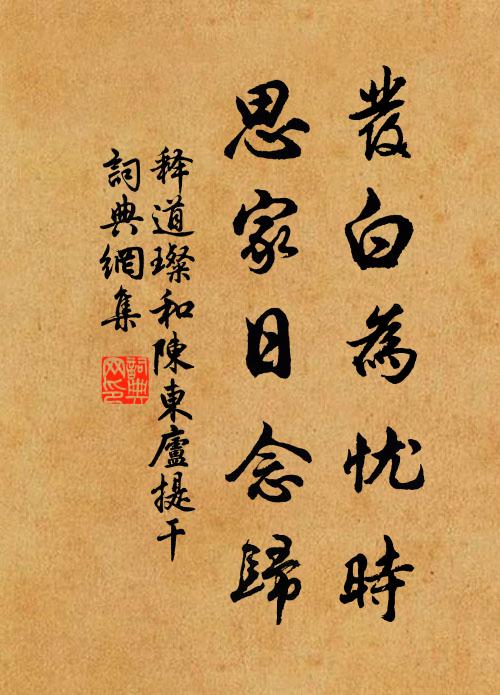 發白為忧時
思家日念歸
释道璨和陳東廬提干
詞典網集
詞典网印